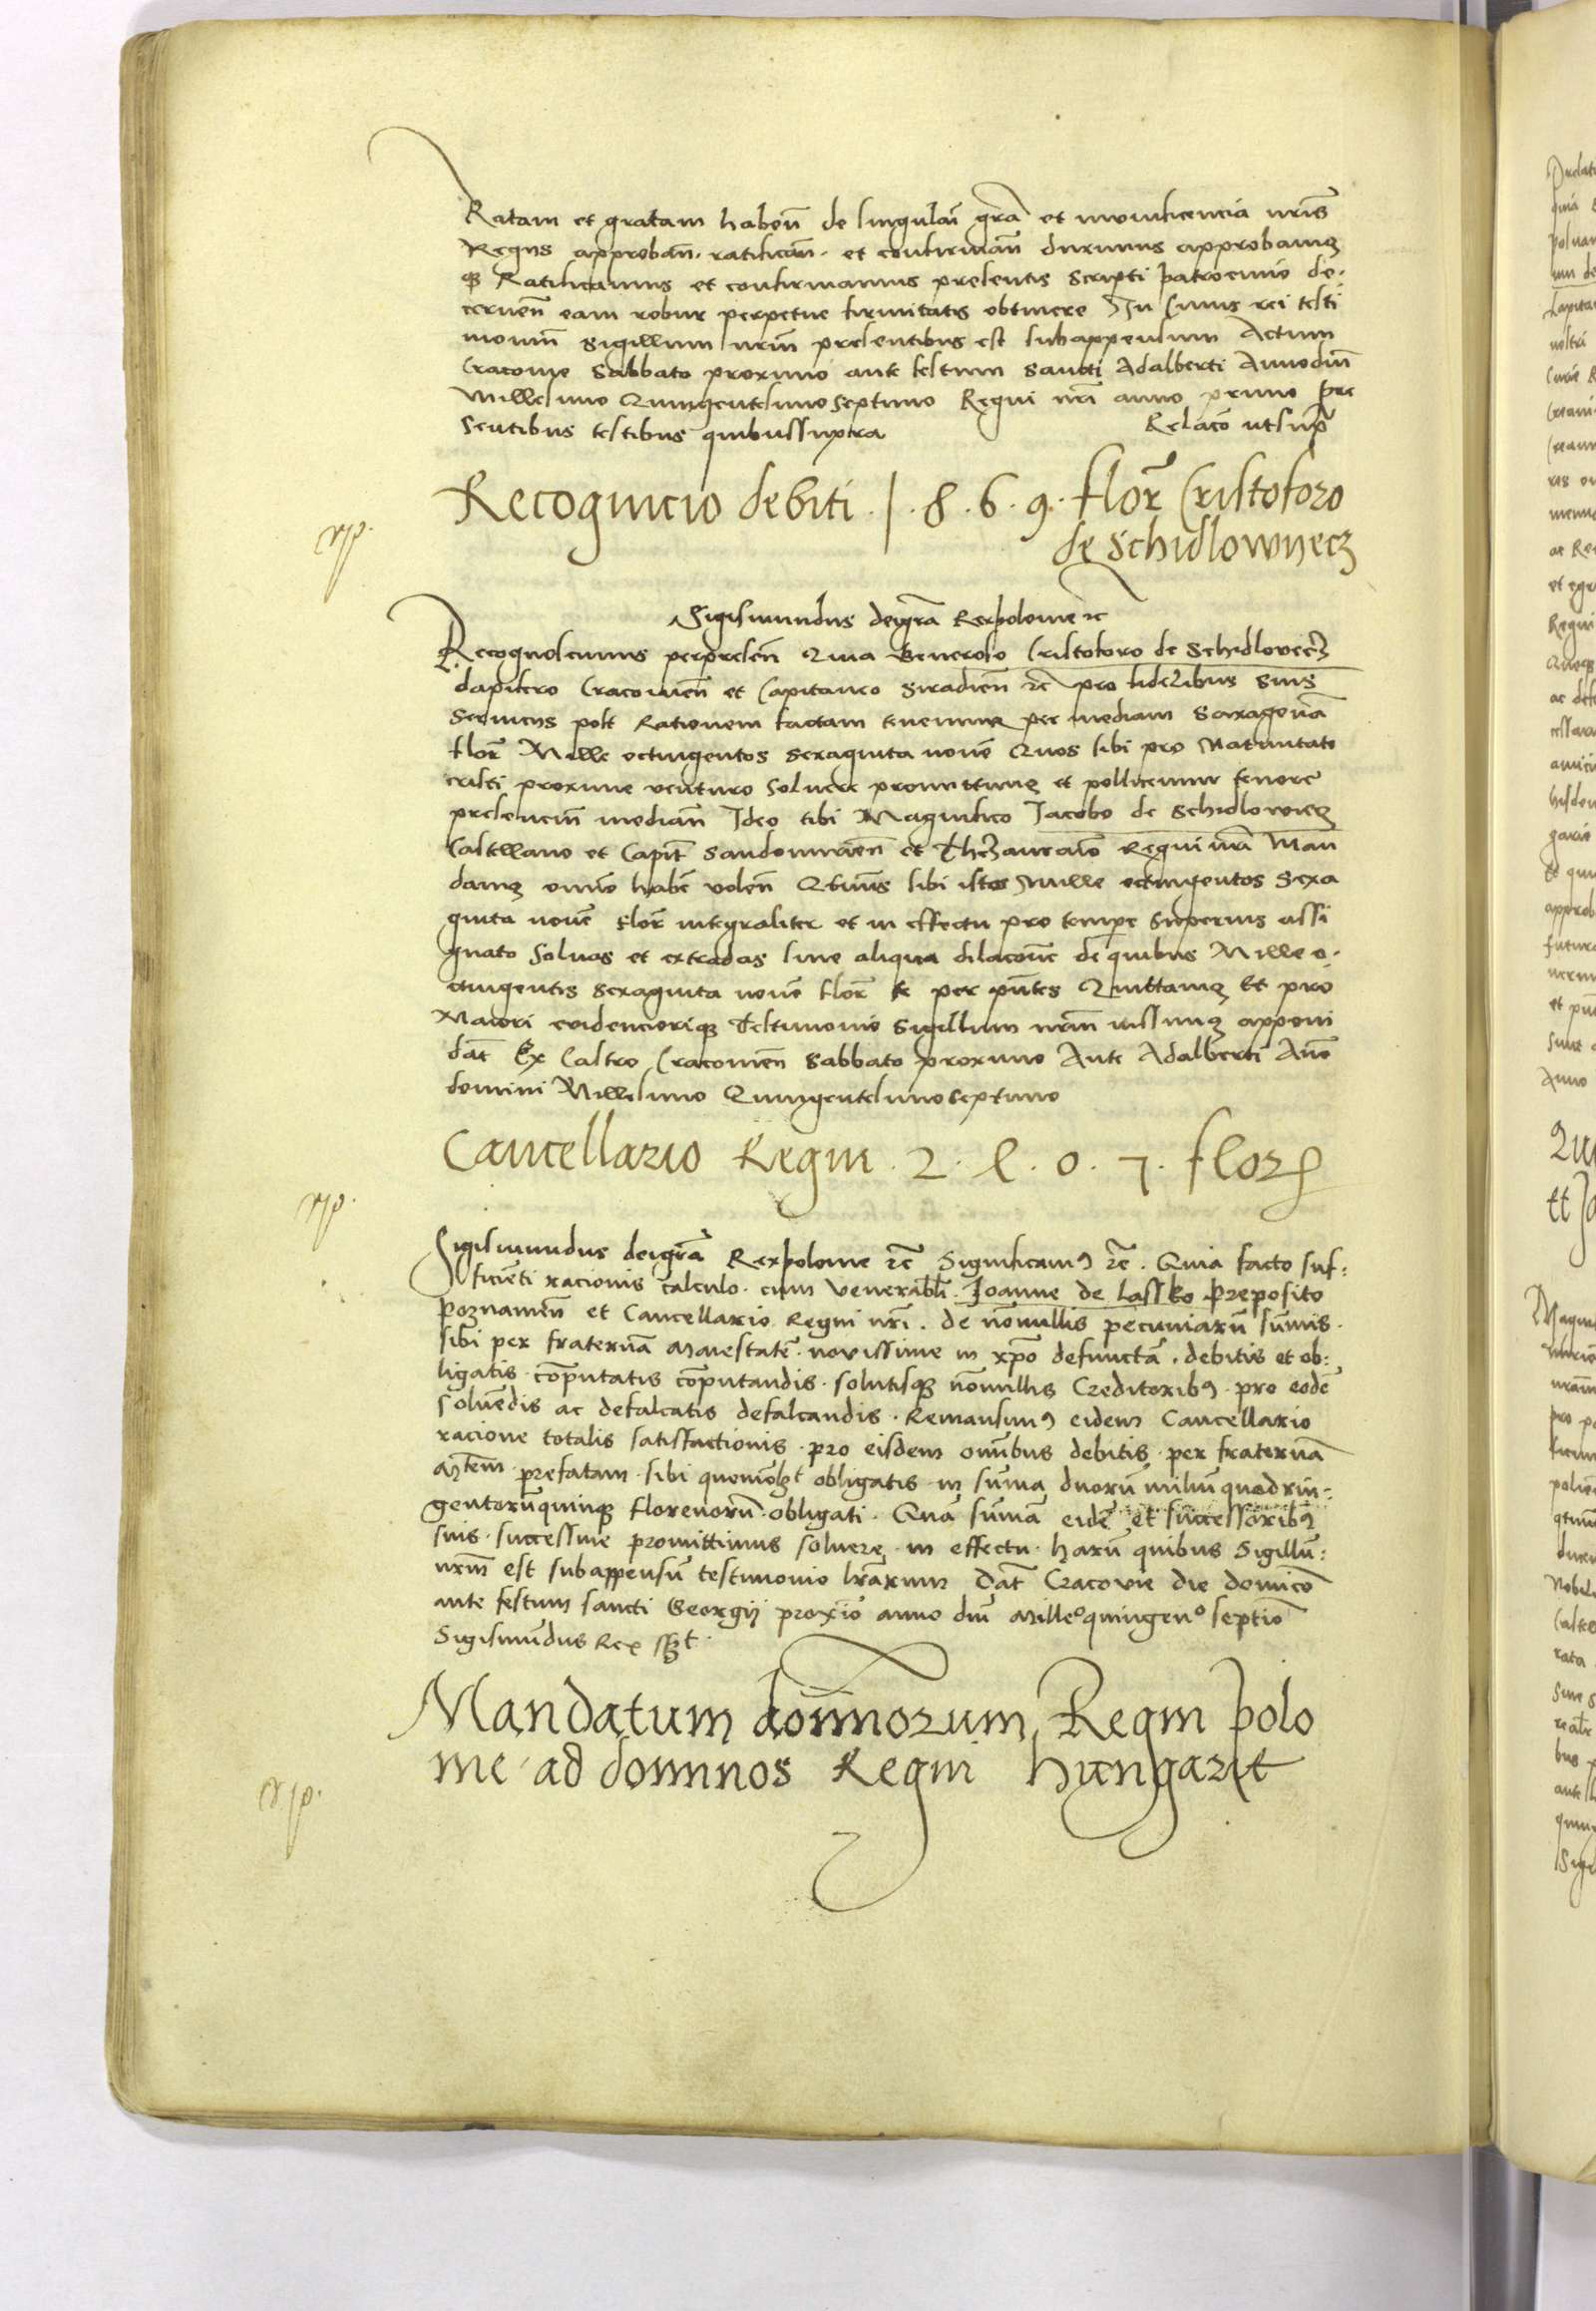 Ratam et gratam haben̄ de singulari gr̄a et munificencia nr̄is
Regiis approban̄. ratifican̄. et confirman̄ duximus approbamus
q3 Ratificamus et confirmamus presentis scripti patrocinio de-
cernen̄ eam robur perpetue firmitatis obtinere In cuius rei testi
monium̄ sigillum nrm̄ presentibus est subappensum Actum
Cracovie Sabbato proximo ante festum Sancti Adalberti Annodm̄
Millesimo Quingentesimoseptimo Regni nr̄i anno primo pre
sentibus testibus quibussupra Relaco utsup̄
Recognicio debiti . 1 . 8 . 6 . 9 . flor̄ Cristoforo
de Schidlowyecz
rp.
Sigismundus deigr̄a Rexpolonie r̄c
Recognoscimus perpresen̄ Quia Generoso Cristoforo de Schidlovecz
dapifero Cracovien̄ et Capitaneo Siradien̄ r̄c pro fidelibus suis
Serviciis post Rationem factam tenemur per mediam Sexagenā
flor̄ Mille octingentos sexaginta novē Quos sibi pro Nativitate
cristi proxime venturo Solvere promittimus et pollicemur tenore
presencium̄ median̄ Ideo tibi Magnifico Jacobo de Schidlowiecz
Castellano et Capit̄ Sandomirien̄ et Thezaurario Regni nr̄i Man
damus omnino habē volen̄ Qtinus sibi istos Mille octingentos Sexa
ginta novē flor̄ integraliter et in effectu pro tempore superius assi
gnato Solvas et extradas sine aliqua dilacone de quibus Mille o-
ctingentis sexaginta novē flor̄ te per pn̄tes Quittamus Et pro
Maiori evidenciorique Testimonio Sigillum nrm̄ iussimus apponi
dat̄ Ex Castro Cracovien̄ Sabbato proximo Ante Adalberti An̄o
domini Millesimo Quingentesimoseptimo
Cancellario Regni . 2 . l . 0 . 7 . flor
rp.
Sigismundus deigr̄a Rexpolonie r̄c Significamus r̄c . Quia facto suf-
ficiēti racionis calculo . cum venerabli . Joanne de Lassko Preposito
Poznanien̄ et Cancellario Regni nr̄i . de nōnullis pecuniarū sūmis .
sibi per fraternā Maiestatē . novissime in xp̄o defunctā . debitis et ob-
ligatis . cōputatis cōputandis . solutisq3 nōnullis Creditoribus . pro eodē
solvēdis ac defalcatis defalcandis . Remansimus eidem Cancellario
racione totalis satisfactionis . pro eisdem omnibus debitis . per fraternā
Mtem̄ . prefatam . sibi quomolt obligatis . in sūma duorū miliū quadrin-
gentorūquinq3 florenorū . obligati . Quā sūmā eidē et successoribus
suis . successive promittimus solvere . in effectu . harū quibus Sigillū-
nrm̄ est subappensū testimonio lr̄arum Dat̄ Cracovie die domico
ante festum sancti Georgij proxīo anno dn̄i Milleo quingeno septīo
Sigismūdus Rex sszt
Mandatum dominorum Regni polo
nie ad dominos Regni hungarie
rp.